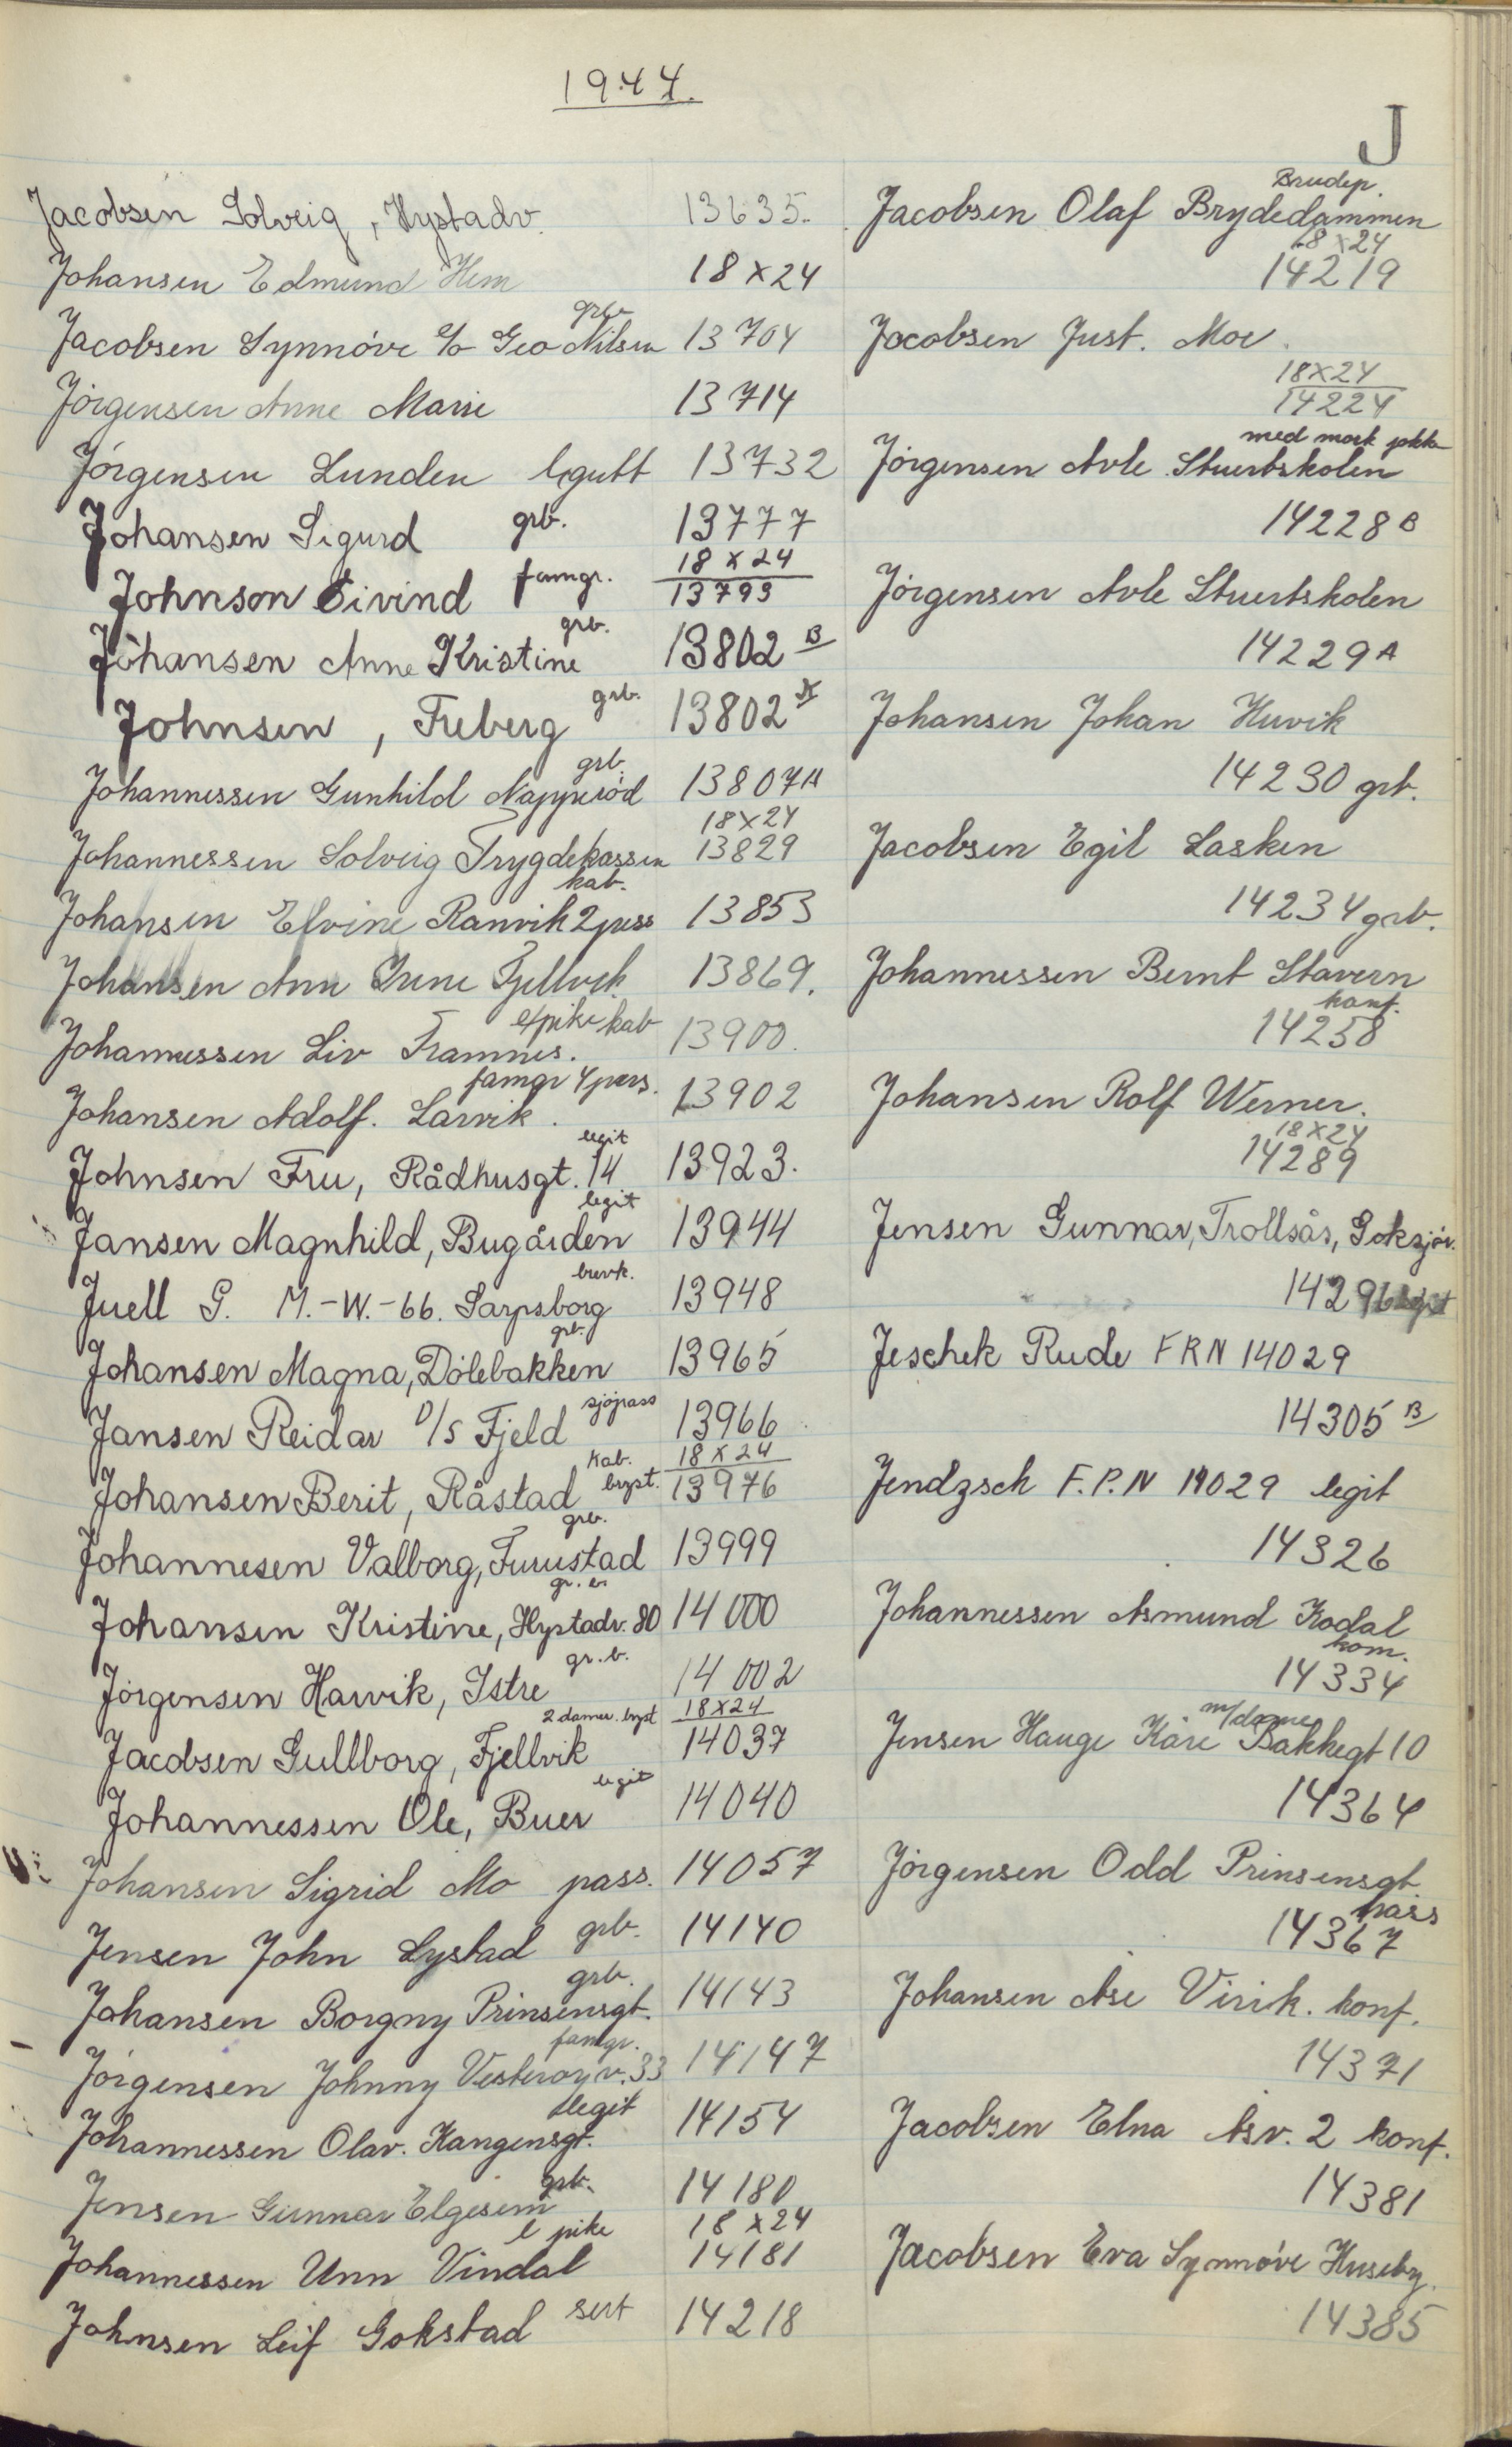 1944.
J
Jacobsen Solveig, Hystadv. 13635.
Johansen Edmund Hem 18x24
grb.
Jacobsen Synnöve c/o Geo Nilsen 13704
Jörgensen Anne Marie 13714
Jörgensen Lunden lgutt 13732
Johansen Sigurd grb. 13777
18x24
Johnson Eivind famgr. 13793
grb.
Johansen Anne Kristine 13802 B
Johnsen, Freberg grb. 13802
grb.
Johannessen Gunhild Napperöd 13807A
18x24
Johannessen Solveig Trygdekassen 13829
kab.
Johansen Elvine Ranvik 2 pers 13853
Johansen Ann Irene Fjellvik 13869.
l pike kab
Johannessen Liv Framnes. 13900.
famgr 4 pers.
Johansen Adolf. Larvik. 13902
legit
Johnsen Fru, Rådhusgt. 14 13923.
legit
Jansen Magnhild, Bugården 13944
brevk.
Juell G. M.-W.-66. Sarpsborg 13948
grb.
Johansen Magna, Dölebakken 13965
sjöpass
Jansen Reidar D/S Fjeld 13966
kab. 18x24
Johansen Berit, Råstad bryst. 13976
grb.
Johannesen Valborg, Furustad 13999
gr.
Johansen Kristine, Hystadv. 80 14000
gr.b.
Jörgensen Harvik, Istre 14002
2 damer. bryst 18x24
Jacobsen Gullborg, Fjellvik 14037
legit
Johannessen Ole, Buer 14040
Johansen Sigrid Mo pass. 14057
Jensen John Lystad grb. 14140
grb.
Johansen Borgny Prinsensgt. 14143
famgr.
Jörgensen Johnny Vesteröyv. 33 14147
legit
Johannessen Olav. Kangensgt. 14154
grb.
Jensen Gunnar Elgesem 14180
l pike 18x24
Johannessen Unn Vindal 14181
Johnsen Leif Gokstad sert 14218
Brudep.
Jacobsen Olaf Brydedammen
18x24
14219
Jacobsen Just. Moe.
18x24
14224
med mørk jakke
Jörgensen Arle Stuertskolen
14228 B
Jörgensen Arle Stuertskolen
14229 A
Johansen Johan Huvik
14230 grb.
Jacobsen Egil Lasken
14234 grb.
Johannessen Bernt Stavern
konf.
14258
Johansen Rolf Werner.
18x24
14289
Jensen Gunnar, Trollsås, Goksjör.
14296 legit
Jeschek Rude FRN 14029
14305 B
Jendzsch F.P.N 19029 legit
14326
Johannessen Asmund Kodal
kom.
14334
m/dame
Jensen Hauge Kåre Bakkegt 10
14364
Jörgensen Odd Prinsensgt.
pass
14367
Johansen Åse Virik. konf.
14371
Jacobsen Elna Åsv. 2 konf.
14381
Jacobsen Eva Synnöve Huseby.
14385